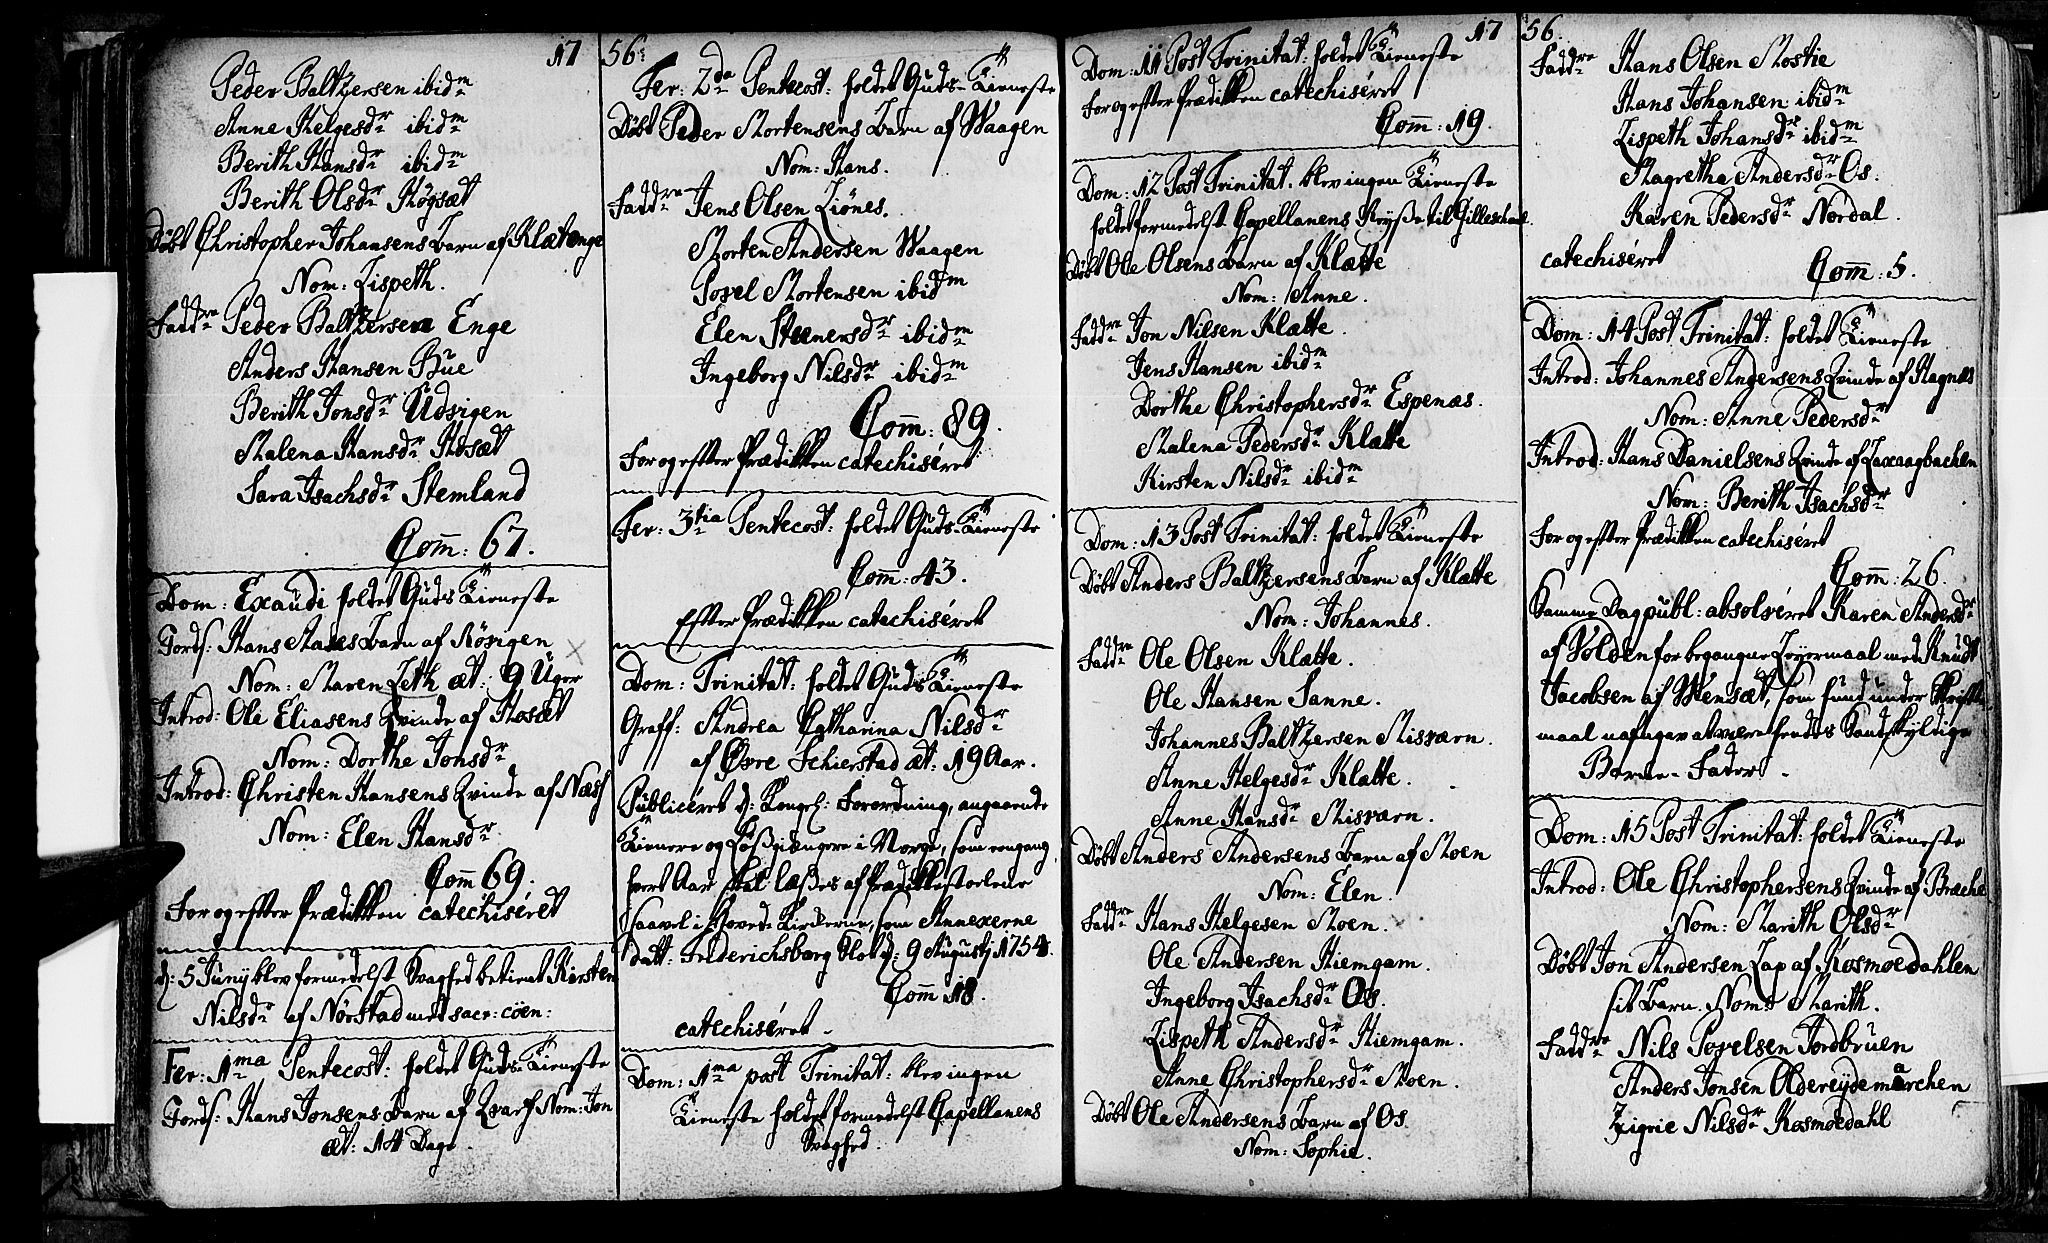 17
Peder Baltzersen ibidm
Anne Helgesdr ibidm
Berith Hansdr ibidm
Berith Olsdr Høgsæt
Døbt Christopher Johansens Barn af Klætenge
Nom: Lispeth.
Faddre Peder Baltzersen Enge
Anders Hansen Bue
Berith Jonsdr Udsigen
Malena Hansdr Hosæt
Sara Isachsdr Stemland
Com̄: 67.
Dom: Exaudi holdet Guds Tieneste
Jords: Hans Aases Barn af Røsigen
Nom: Maren Zeth æt: 9 Uger
Introd: Ole Eliasens Qvinde af Hosæt
Nom: Dorthe Jonsdr
Introd: Christen Hansens Qvinde af Næss
Nom: Elen Hansdr
Com̄ 69.
For og efter Prædikken catechiséret
d: 5 Juny blev formedelst Svaghed betient Kirsten
Nilsdr af Nørstad med sacr: cöen:
Fer: 1ma Pentecost: holdet Guds-Tieneste
Jords: Hans Jonsens Barn af Qvarf Nom: Jon
æt: 14 Dage
56.
Fer: 2da Pentecost: holdet Guds-Tieneste
Døbt Peder Mortensens Barn af Waagen
Nom: Hans.
Faddre Jens Olsen Liønes.
Morten Andersen Waagen
Povel Mortensen ibidm
Elen Steenersdr ibidm
Ingeborg Nilsdr ibidm
Com̄: 89.
For og efter Prædikken catechiséret
Fer: 3tia Pentecost: holdet Guds-Tieneste
Com̄: 43.
Efter Prædikken catechiséret
Dom: Trinitat: holdet Guds Tieneste
Graff: Andrea Catharina Nilsdr
af Øvre Schierstad æt: 19 Aar.
Publicéret d: Kongel: Forordning, angaaende
Tienere og Løßgiængere i Norge, som eengang
hvert Aar skal læses af Prædikkestolene
saavel i Hoved-Kirkerne, som Annexerne
Datt: Friderichsborg Slot d: 9 Augustj 1754.
Com̄ 18.
catechiséret.
Dom: 1ma post Trinitat: blev ingen
Tieneste holdet formedelst Capellanens
Svaghed.
17
Dom: 11 Post Trinitat: holdet Tieneste
For og efter Prædikken catechiséret
Com̄: 19.
Dom: 12 Post Trinitat. blev ingen Tieneste
holdet formedelst Capellanens Reyße til Gilleschaal
Døbt Ole Olsens Barn af Klætte
Nom: Anne.
Faddre Jon Nilsen Klætte.
Jens Hansen ibidm
Dorthe Christophersdr Espenæs.
Malena Pedersdr Klætte
Kirsten Nilsdr ibidm
Dom: 13 Post Trinitat: holdet Tieneste
Døbt Anders Baltzersens Barn af Klætte
Nom: Johannes.
Faddre Ole Olsen Klætte.
Ole Hansen Sanne.
Johannes Baltzersen Misværn.
Anne Helgesdr Klætte.
Anne Hansdr Misværn.
Døbt Anders Andersens Barn af Moen
Nom: Elen.
Faddre Hans Helgesen Moen.
Ole Andersen Hiemgam.
Ingeborg Isachsdr Os.
Lispeth Andersdr Hiemgam.
Anne Christophersdr Moen.
Døbt Ole Andersens Barn af Os.
Nom: Sophie.
56.
Faddre Hans Olsen Mostie
Hans Johansen ibidm
Lispeth Johansdr ibidm
Magretha Andersdr Os.
Karen Pedersdr Nordal.
catechiséret
Com̄: 5.
Dom: 14 Post Trinitat: holdet Tieneste
Introd: Johannes Andersens Qvinde af Hagnæs
Nom: Anne Pedersdr
Introd: Hans Danielsens Qvinde af Laxaagbachen
Nom: Berith Isachsdr
For og efter Prædikken catechiséret
Com̄: 26.
Samme Dag publ: absolvéret Karen Andersdr
af Volden for begangne Leyermaal med Knudt
Jacobsen af Wensæt, som hun under Skrifte-
maal nafngav at være hendes Sandskyldige
Barne-Fader.
Dom: 15 Post Trinitat: holdet Tieneste
Introd: Ole Christophersens Qvinde af Bræche
Nom: Marith Olsdr
Døbt Jon Andersen Lap af Kosmoedahlen
sit Barn. Nom: Marith.
Faddre Nils Povelsen Jordbruen
Anders Jonsen Oldereydemarchen
Zigrie Nilsdr Kosmoedahl